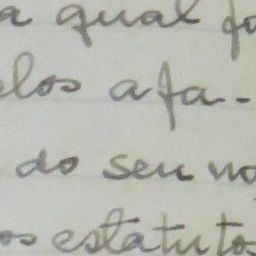 a qual fo
elos afa-
do seu no
os estatutos